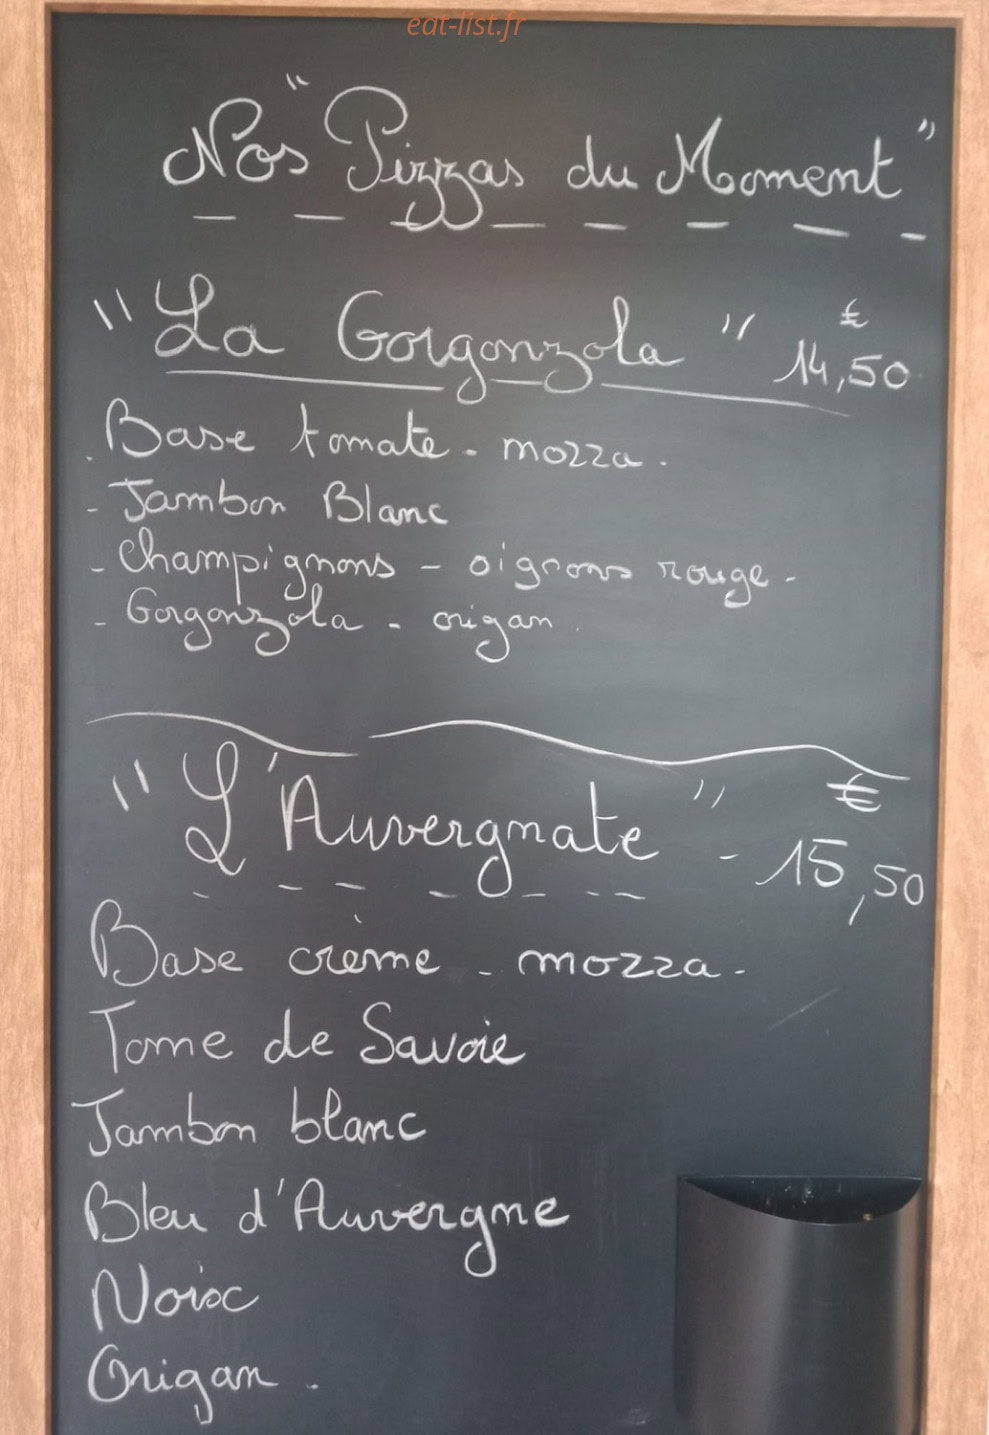 eat-list.fr
Nos "Pizzas du Moment"
"La Gorgonzola" 14,50 €
. Base tomate - mozza.
- Jambon Blanc
- Champignons - oignons rouge -
- Gorgonzola - origan.
"L'Auvergnate" - 15,50 €
Base crème - mozza -
Tome de Savoie
Jambon blanc
Bleu d'Auvergne
Noix
Origan.